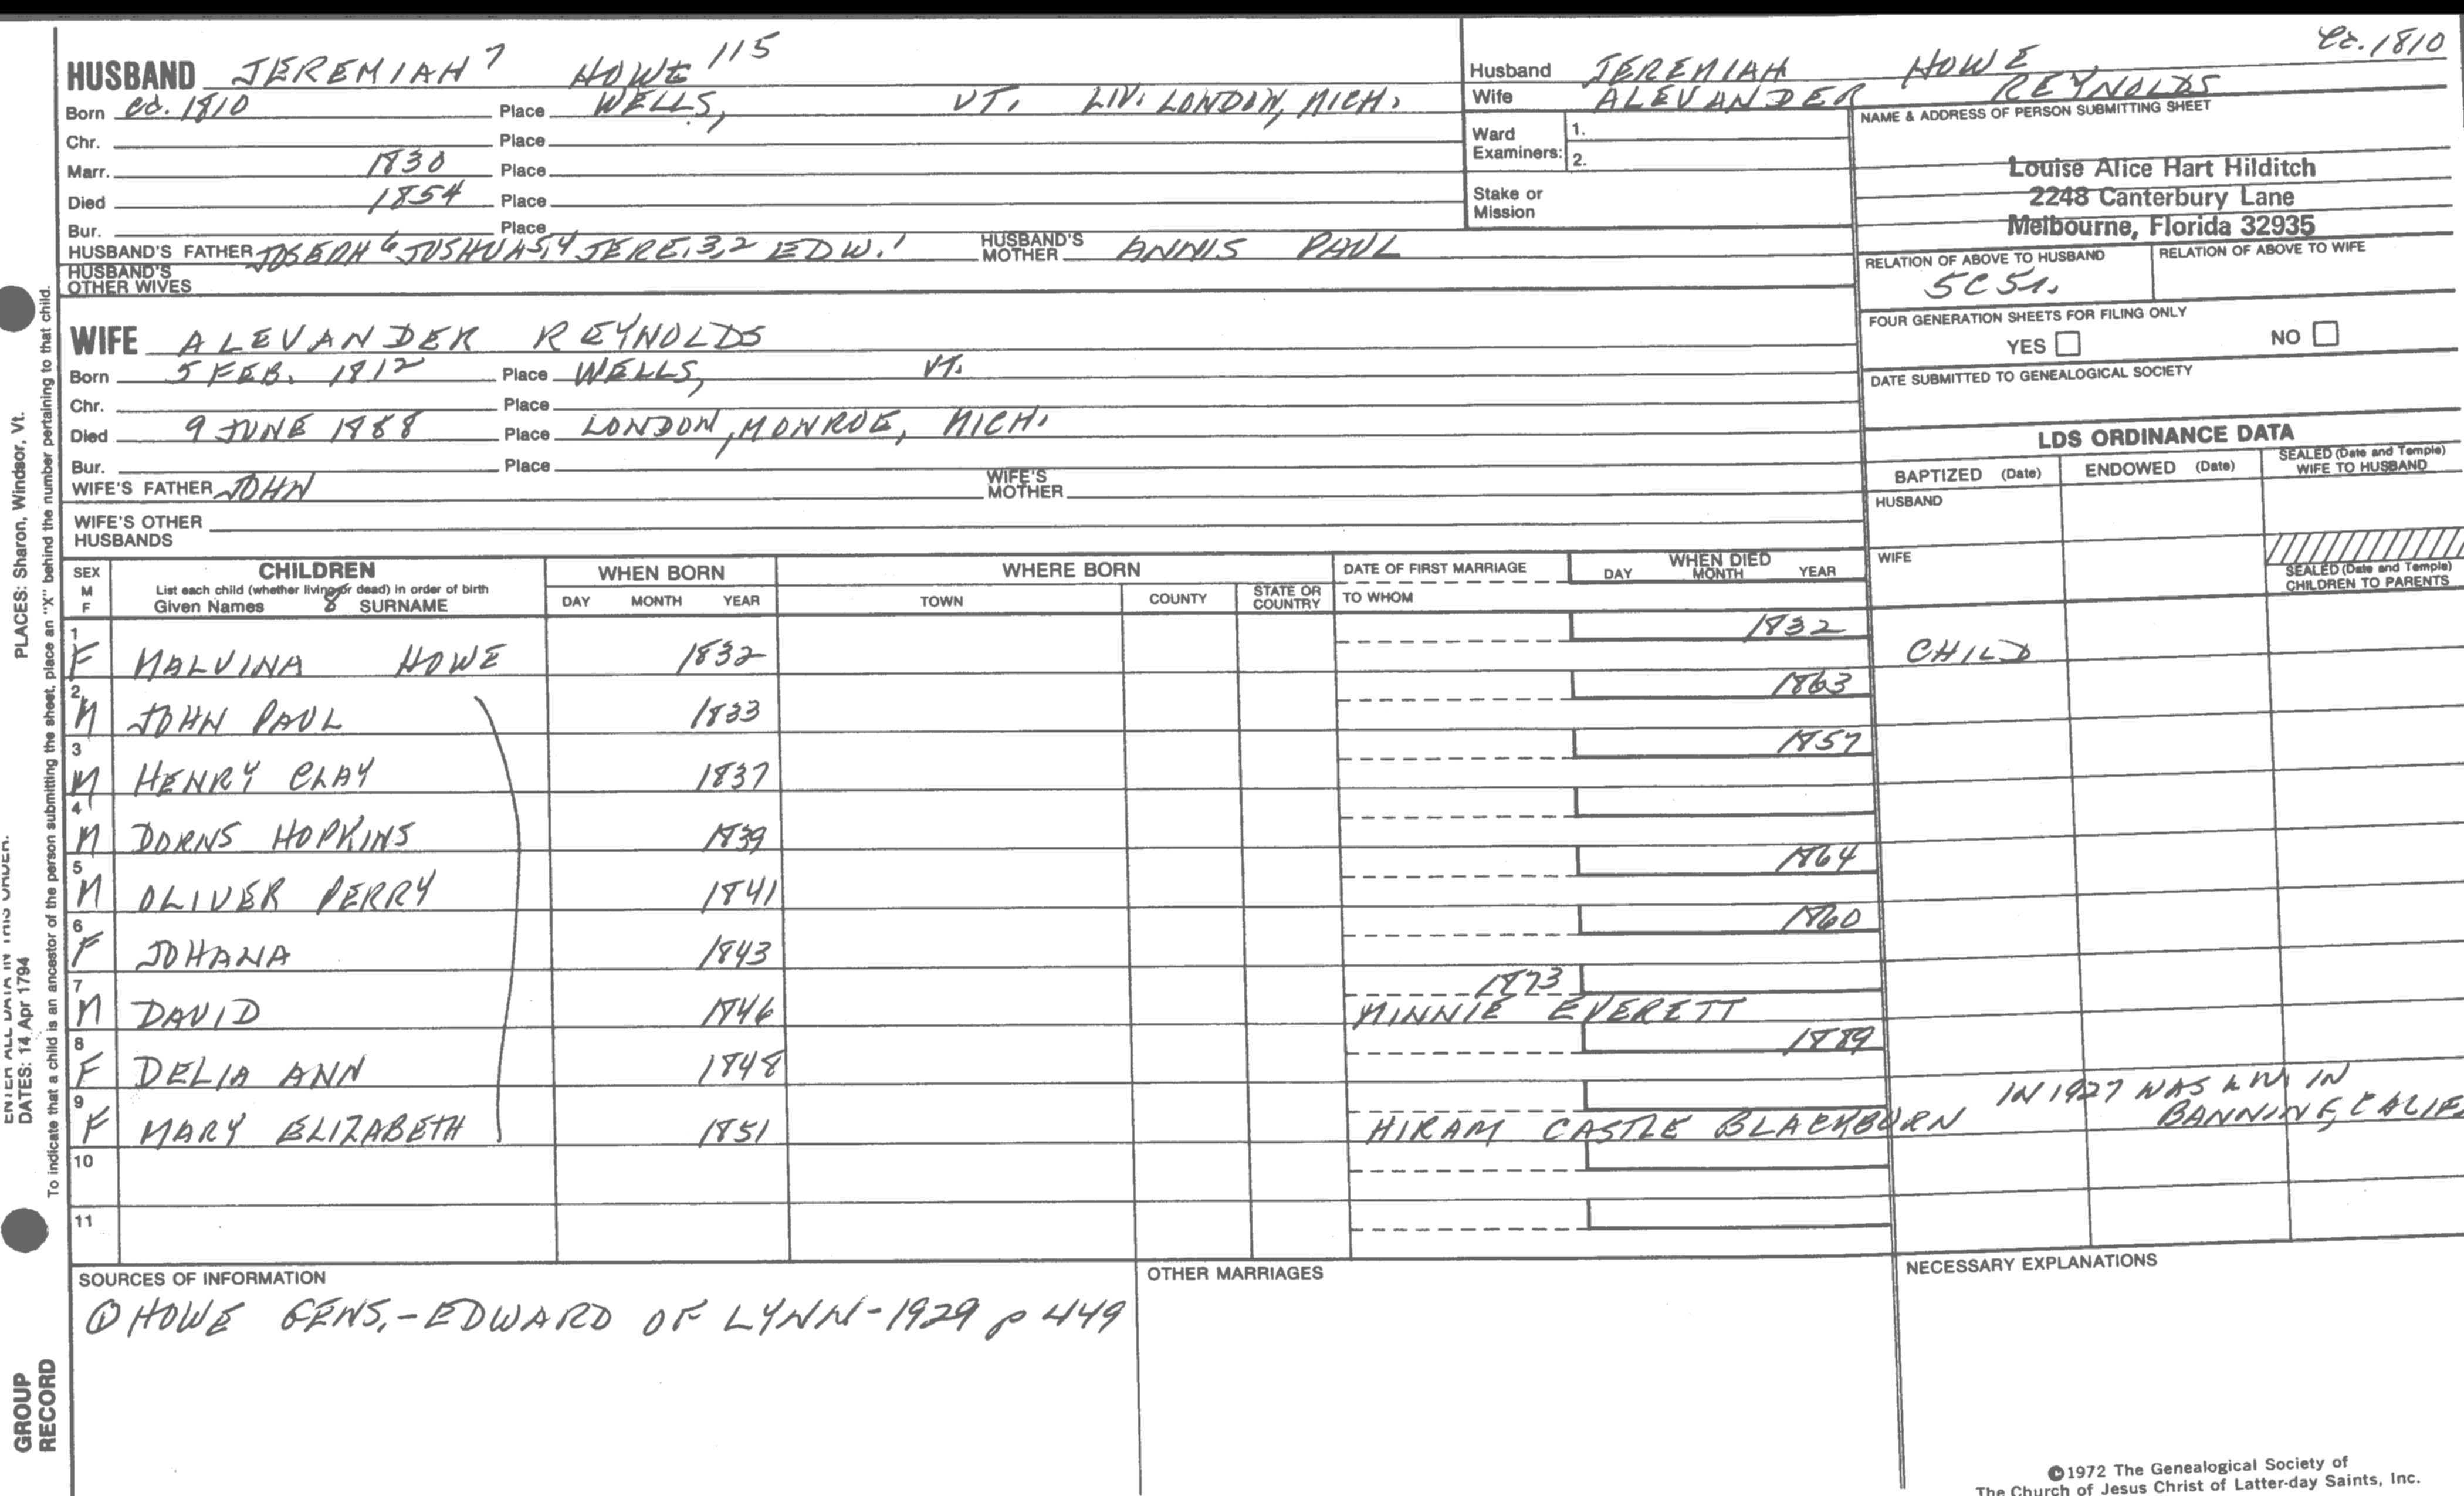 HUSBAND JEREMIAH 7 HOWE 115
Born ca. 1810 Place WELLS, VT. LIV. LONDON, MICH.
Chr. Place
Marr. 1830 Place
Died 1854 Place
Bur. Place
HUSBAND'S FATHER JOSEPH 6 JOSHUA 5,4 JERE. 3,2 EDW. 1 HUSBAND'S MOTHER ANNIS PAUL
HUSBAND'S OTHER WIVES
WIFE ALEVANDER REYNOLDS
Born 5 FEB. 1812 Place WELLS, VT.
Chr. Place
Died 9 JUNE 1888 Place LONDON, MONROE, MICH.
Bur. Place
WIFE'S FATHER JOHN WIFE'S MOTHER
WIFE'S OTHER HUSBANDS
ca. 1810
Husband JEREMIAH HOWE
Wife ALEVANDER REYNOLDS
Ward Examiners: 1.
2.
Stake or Mission
NAME & ADDRESS OF PERSON SUBMITTING SHEET
Louise Alice Hart Hilditch
2248 Canterbury Lane
Melbourne, Florida 32935
RELATION OF ABOVE TO HUSBAND RELATION OF ABOVE TO WIFE
FOUR GENERATION SHEETS FOR FILING ONLY
YES NO
DATE SUBMITTED TO GENEALOGICAL SOCIETY
LDS ORDINANCE DATA
BAPTIZED (Date) ENDOWED (Date) SEALED (Date and Temple) WIFE TO HUSBAND
HUSBAND
WIFE
SEALED (Date and Temple) CHILDREN TO PARENTS
SEX M F
CHILDREN
List each child (whether living or dead) in order of birth
Given Names 8 SURNAME
WHEN BORN
DAY MONTH YEAR
WHERE BORN
TOWN COUNTY STATE OR COUNTRY
DATE OF FIRST MARRIAGE
TO WHOM
WHEN DIED
DAY MONTH YEAR
1 F MALVINA HOWE 1832 1832 CHILD
2 M JOHN PAUL 1833 1863
3 M HENRY CLAY 1837 1857
4 M DORNS HOPKINS 1839
5 M OLIVER PERRY 1841 1864
6 F JOHANA 1843 1860
7 M DAVID 1846 1873 MINNIE EVERETT
8 F DELIA ANN 1848 1889
9 F MARY ELIZABETH 1851 HIRAM CASTLE BLACKBURN IN 1927 WAS LIV. IN BANNING, CALIF
10
11
SOURCES OF INFORMATION
① HOWE GENS.-EDWARD OF LYNN-1929 p 449
OTHER MARRIAGES
NECESSARY EXPLANATIONS
©1972 The Genealogical Society of
The Church of Jesus Christ of Latter-day Saints, Inc.
ENTER ALL DATA IN THIS ORDER:
DATES: 14 Apr 1794
PLACES: Sharon, Windsor, Vt.
To indicate that a child is an ancestor of the person submitting the sheet, place an "X" behind the number pertaining to that child.
GROUP
RECORD